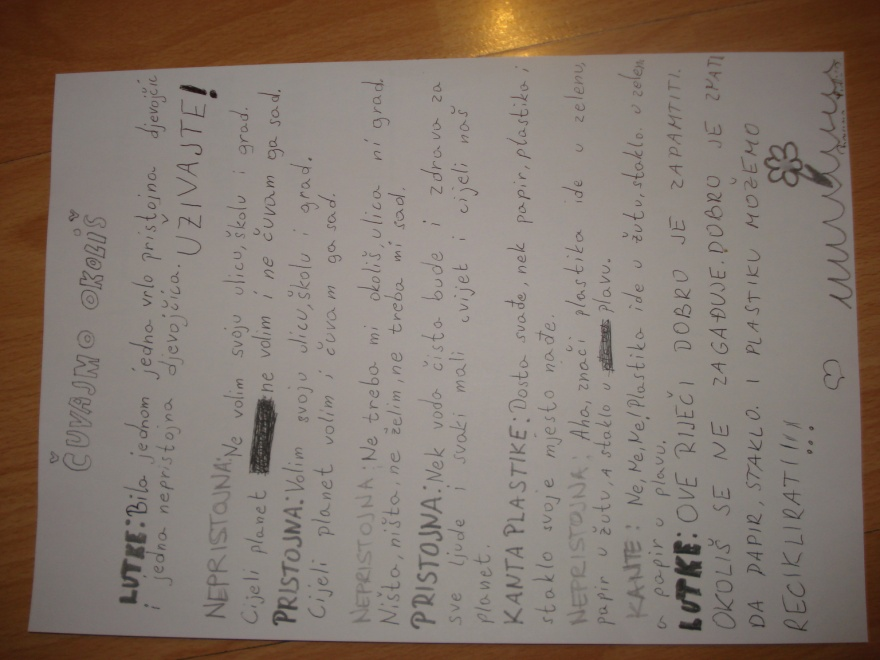 ČUVAJMO OKOLIŠ
LUTKE: Bila jednom jedna vrlo pristojna djevojčica
i jedna nepristojna djevojčica. UŽIVAJTE!
NEPRISTOJNA: Ne volim svoju ulicu, školu i grad.
Cijeli planet ne volim i ne čuvam ga sad.
PRISTOJNA: Volim svoju ulicu, školu i grad.
Cijeli planet volim i čuvam ga sad.
NEPRISTOJNA: Ne treba mi okoliš, ulica ni grad.
Ništa, ništa, ne želim, ne treba mi sad.
PRISTOJNA: Nek voda čista bude i zdrava za
sve ljude i svaki mali cvijet i cijeli naš
planet.
KANTA PLASTIKE: Dosta svađe, nek papir, plastika i
staklo svoje mjesto nađe.
NEPRISTOJNA: Aha, znači plastika ide u zelenu,
papir u žutu, a staklo u plavu.
KANTE: Ne, Ne, Ne! Plastika ide u žutu, staklo u zelenu
a papir u plavu.
LUTKE: OVE RIJEČI DOBRO JE ZAPAMTITI.
OKOLIŠ SE NE ZAGAĐUJE. DOBRO JE ZNATI
DA PAPIR, STAKLO I PLASTIKU MOŽEMO
RECIKLIRATI!!!...